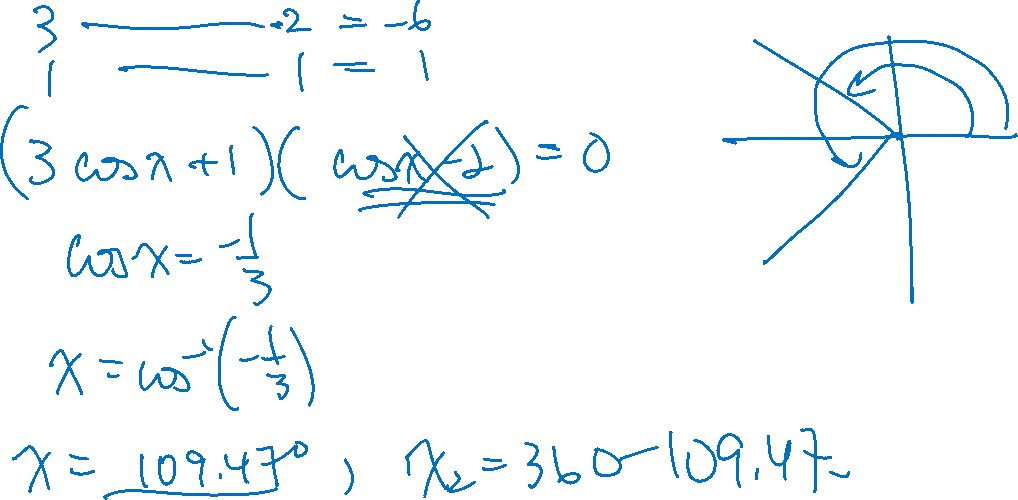 3 —— -2 = -6
1 —— 1 = 1
(3 cosx + 1)(cosx - 2) = 0
cosx = -1/3
x = cos⁻¹(-1/3)
x = 109.47°, x₂ = 360 - 109.47